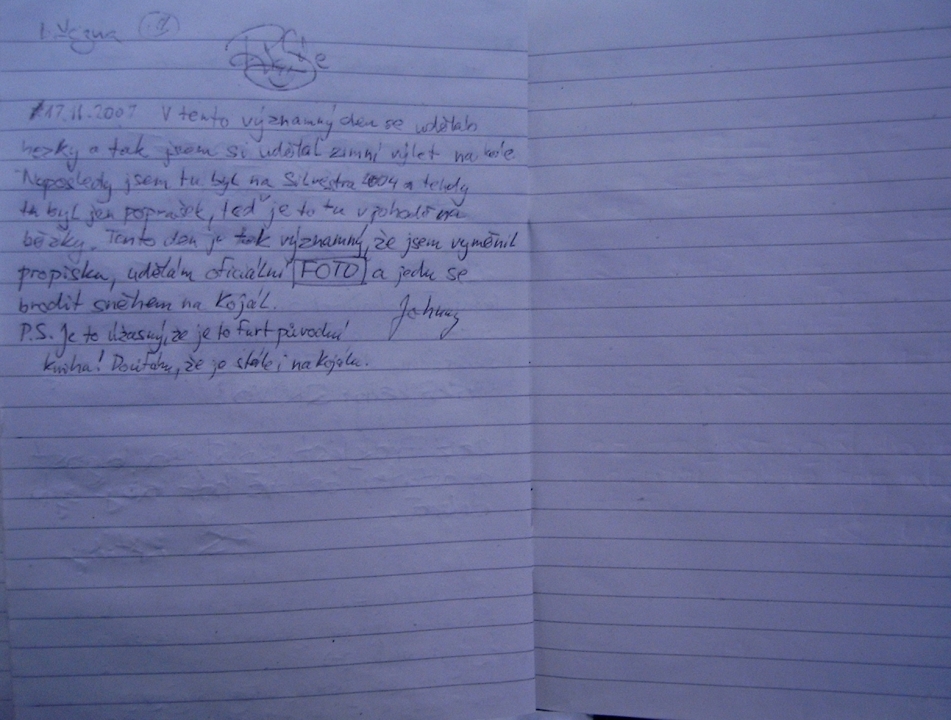 17.11.2007 V tento významný den se udělalo
hezky a tak jsem si udělal zimní výlet na kole
Naposledy jsem tu byl na Silvestra 2004 a tehdy
tu byl jen poprašek, teď je to tu v pohodě na
běžky. Tento den je tak významný, že jsem vyměnil
propisku, udělám oficiální FOTO a jedu se
brodit sněhem na Kojál. Johnny
P.S. Je to úžasný, že je to furt původní
kniha! Doufám, že je stále i na Kojálu.